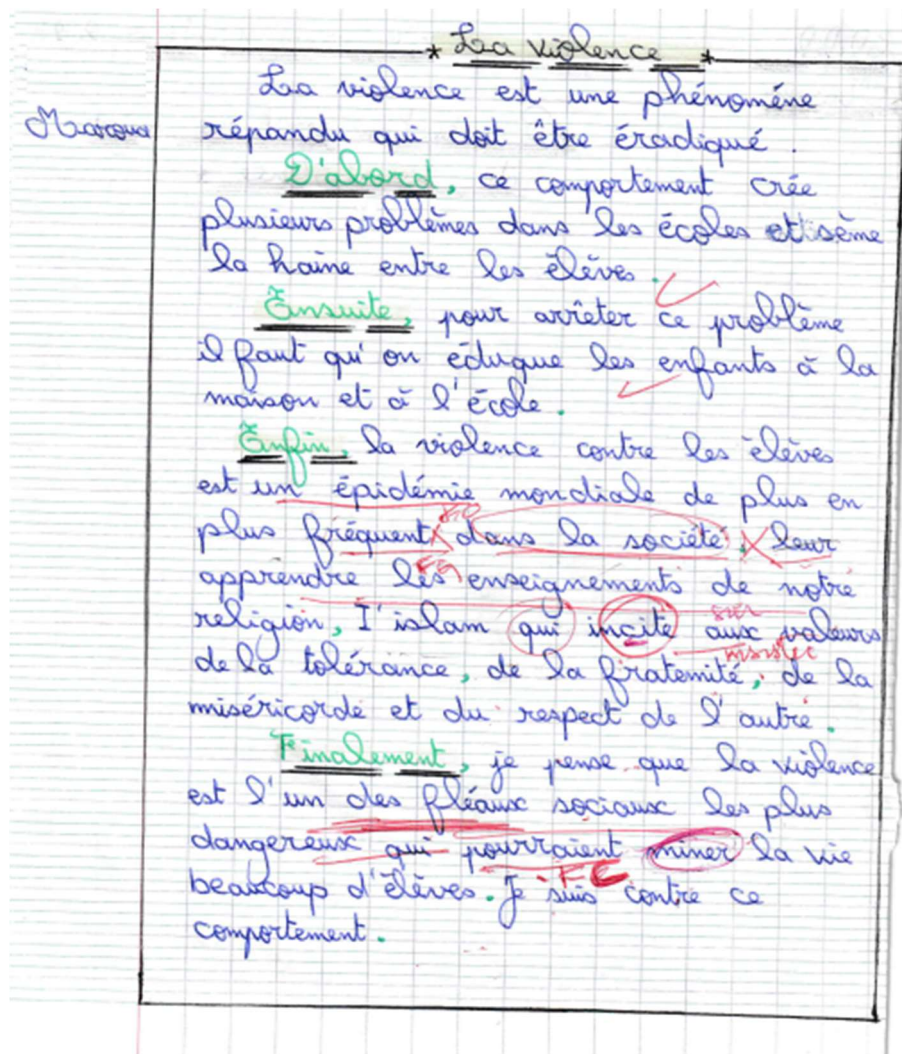 * La violence *
La violence est une phénoméne
Maroua
répandu qui doit être éradiqué.
D'abord, ce comportement crée
plusieurs problèmes dans les écoles et sème
la haine entre les élèves.
Ensuite, pour arrêter ce problème
il faut qu'on éduque les enfants à la
maison et à l'école.
Enfin, la violence contre les élèves
est un épidémie mondiale de plus en
plus fréquent dans la société, leur
apprendre les enseignements de notre
religion, I'islam qui incite aux valeurs
de la tolérance, de la firatemité, de la
miséricorde et du respect de l'autre.
Finalement, je pense que la violence
est l'un des fléaux sociaux les plus
dangereux qui pourraient miner la vie
FC
beaucoup d'élèves. Je suis contre ce
comportement.